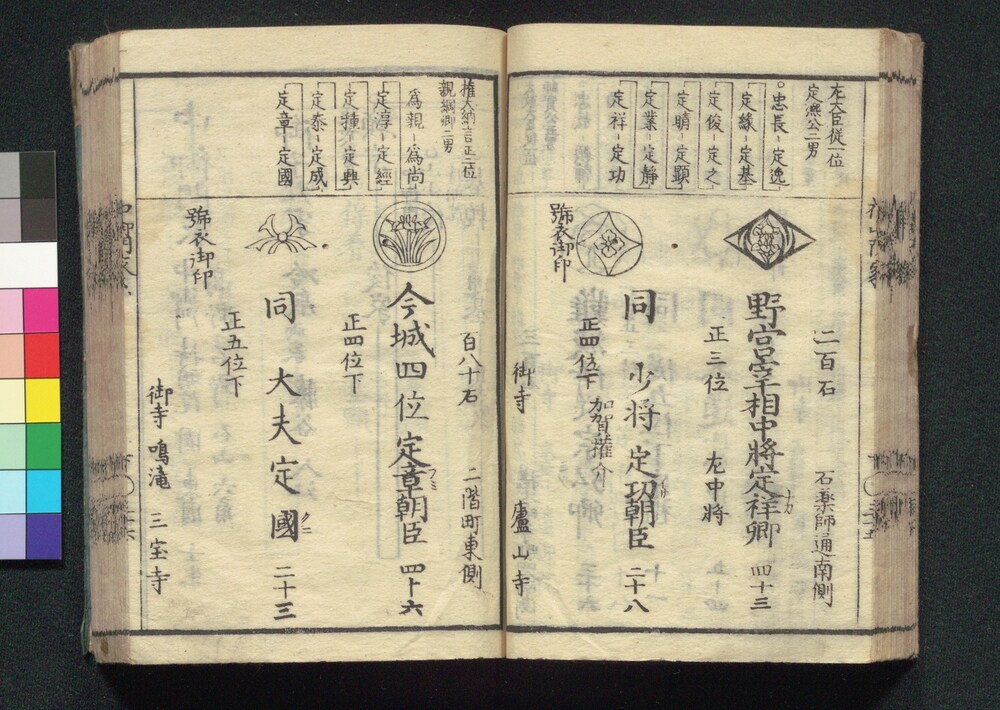 左大臣従一位
定凞公二男
忠長―定逸
定縁―定基
定俊―定之
定晴―定顕
定業―定静
定祥―定功
二百石
石薬師通南側
野宮宰相中將定祥卿
ナカ
四十三
正三位
左中將
同
少將
定功朝臣
二十八
正四位下
加賀權介
號衣御印
御寺
廬山寺
權大納言正二位
親綱卿二男
爲親―爲尚
定淳―定經
定種―定興
定泰―定成
定章―定國
百八十石
二階町東側
今城四位定章朝臣
フミ
四十六
正四位下
同
大夫定國
クニ
二十三
正五位下
號衣御印
御寺
鳴滝
三宝寺